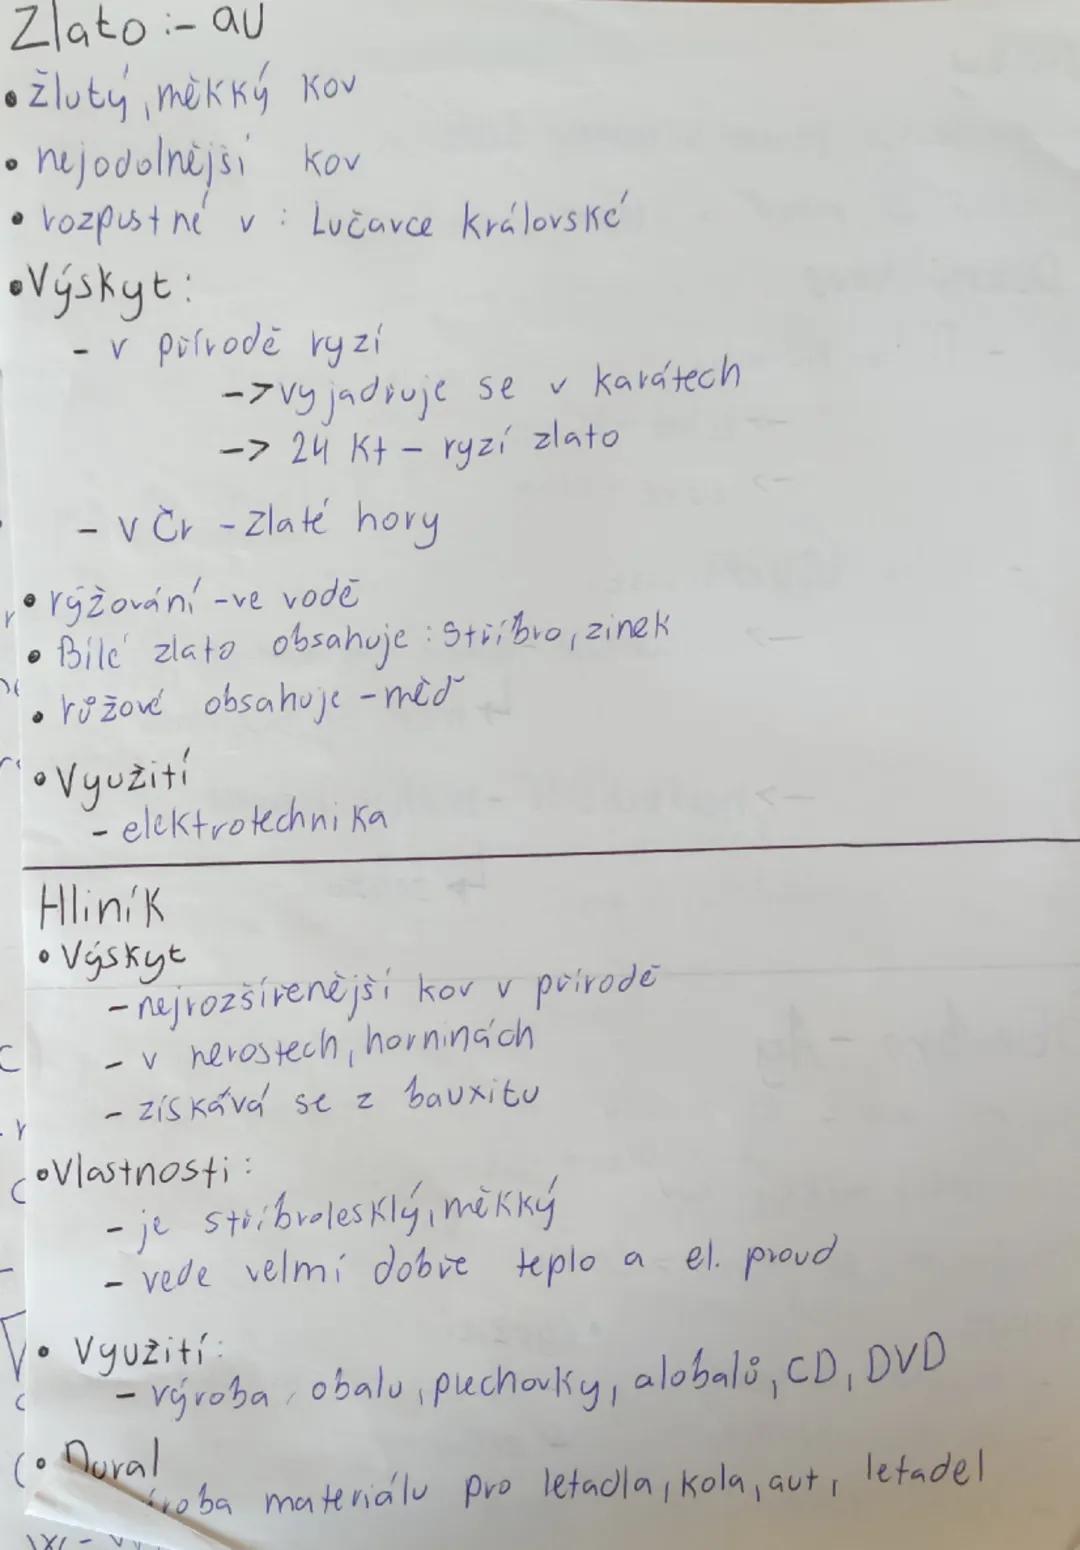 Zlato :- au
• žlutý, měkký kov
• nejodolnější kov
• rozpustné v : Lučavce královské
• Výskyt:
- v přírodě ryzí
-> vyjadruje se v karátech
-> 24 Kt - ryzí zlato
- V Čr - Zlaté hory
• rýžování - ve vodě
• Bílé zlato obsahuje : Stříbro, zinek
• růžové obsahuje - měď
• Využití
- elektrotechnika
Hliník
• Výskyt
- nejrozšířenější kov v přírodě
- v nerostech, horninách
- získává se z bauxitu
• Vlastnosti :
- je stříbrolesklý, měkký
- vede velmi dobře teplo a el. proud
• Využití:
- výroba obalu, plechovky, alobalů, CD, DVD
• Dural
roba materiálu pro letadla, kola, aut, letadel